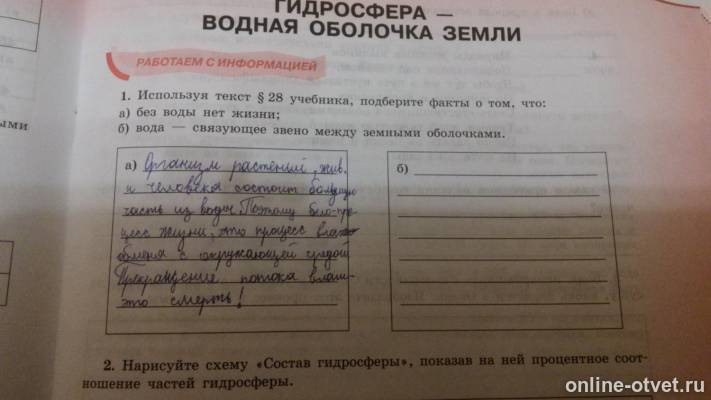 ГИДРОСФЕРА —
ВОДНАЯ ОБОЛОЧКА ЗЕМЛИ
РАБОТАЕМ С ИНФОРМАЦИЕЙ
1. Используя текст § 28 учебника, подберите факты о том, что:
а) без воды нет жизни;
б) вода — связующее звено между земными оболочками.
ыми
а) Организм растений, жив.
и человека состоит большую
часть из воды. Поэтому био-про-
цесс жизни, это процесс влаго
обмена с окружающей средой
Прекращение потока влаги-
это смерть!
б)
2. Нарисуйте схему «Состав гидросферы», показав на ней процентное соот-
ношение частей гидросферы.
online-otvet.ru